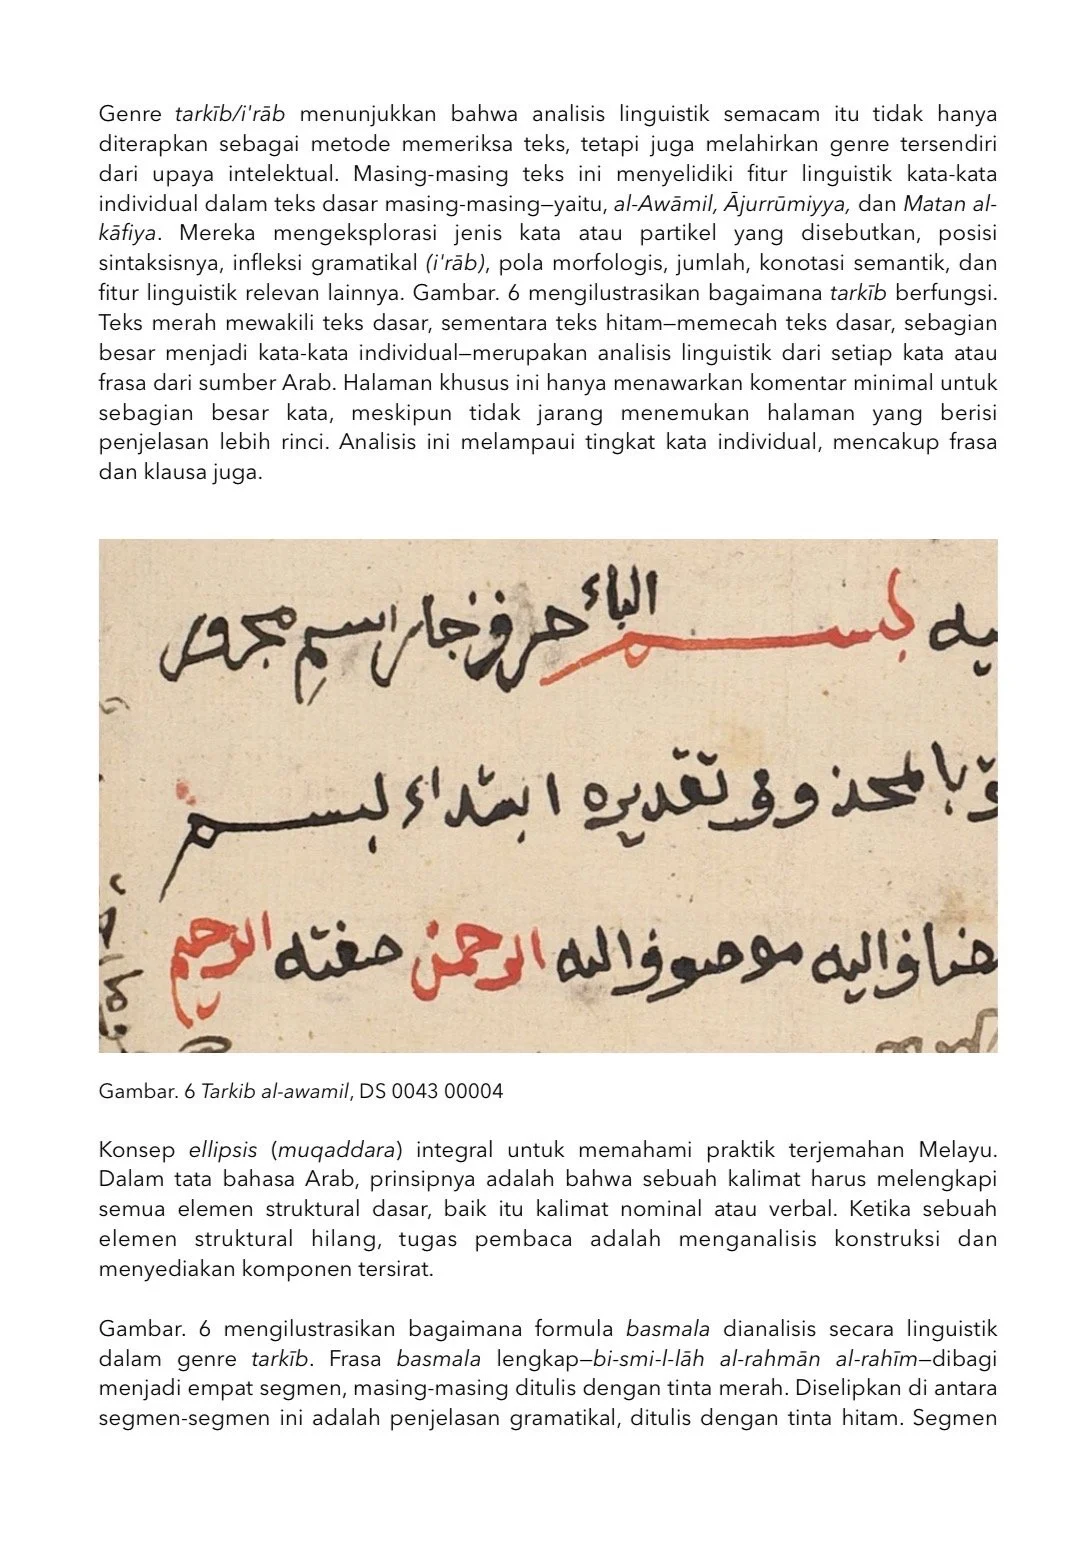 Genre tarkīb/i'rāb menunjukkan bahwa analisis linguistik semacam itu tidak hanya
diterapkan sebagai metode memeriksa teks, tetapi juga melahirkan genre tersendiri
dari upaya intelektual. Masing-masing teks ini menyelidiki fitur linguistik kata-kata
individual dalam teks dasar masing-masing—yaitu, al-Awāmil, Ājurrūmiyya, dan Matan al-
kāfiya. Mereka mengeksplorasi jenis kata atau partikel yang disebutkan, posisi
sintaksisnya, infleksi gramatikal (i'rāb), pola morfologis, jumlah, konotasi semantik, dan
fitur linguistik relevan lainnya. Gambar. 6 mengilustrasikan bagaimana tarkīb berfungsi.
Teks merah mewakili teks dasar, sementara teks hitam—memecah teks dasar, sebagian
besar menjadi kata-kata individual—merupakan analisis linguistik dari setiap kata atau
frasa dari sumber Arab. Halaman khusus ini hanya menawarkan komentar minimal untuk
sebagian besar kata, meskipun tidak jarang menemukan halaman yang berisi
penjelasan lebih rinci. Analisis ini melampaui tingkat kata individual, mencakup frasa
dan klausa juga.
بسم الباء حرف جار اسم مجرور
بالمحذوف تقديره ابتداء بسم
مضاف اليه موصوف الله الرحمن صفته الرحيم
Gambar. 6 Tarkib al-awamil, DS 0043 00004
Konsep ellipsis (muqaddara) integral untuk memahami praktik terjemahan Melayu.
Dalam tata bahasa Arab, prinsipnya adalah bahwa sebuah kalimat harus melengkapi
semua elemen struktural dasar, baik itu kalimat nominal atau verbal. Ketika sebuah
elemen struktural hilang, tugas pembaca adalah menganalisis konstruksi dan
menyediakan komponen tersirat.
Gambar. 6 mengilustrasikan bagaimana formula basmala dianalisis secara linguistik
dalam genre tarkīb. Frasa basmala lengkap—bi-smi-l-lāh al-rahmān al-rahīm—dibagi
menjadi empat segmen, masing-masing ditulis dengan tinta merah. Diselipkan di antara
segmen-segmen ini adalah penjelasan gramatikal, ditulis dengan tinta hitam. Segmen